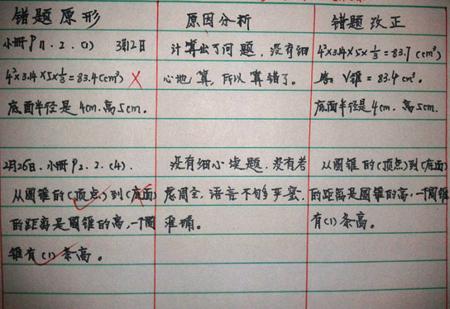 错题原形
小册P1.2.(1) 3月12日
4²×3.14×5×⅓=83.4(cm³)
底面半径是4cm.高5cm.
2月26日.小册P2.2.(4).
从圆锥的(顶点)到(底面)
的距离是圆锥的高,一个圆
锥有(1)条高。
原因分析
计算出了问题,没有细
心地算,所以算错了。
没有细心读题,没有考
虑周全,语言不够严密,
准确。
错题改正
4²×3.14×5×⅓=83.7(cm³)
答:V锥=83.4cm³.
底面半径是4cm.高5cm.
从圆锥的(顶点)到(底面)
的距离是圆锥的高。一个圆锥
有(1)条高。